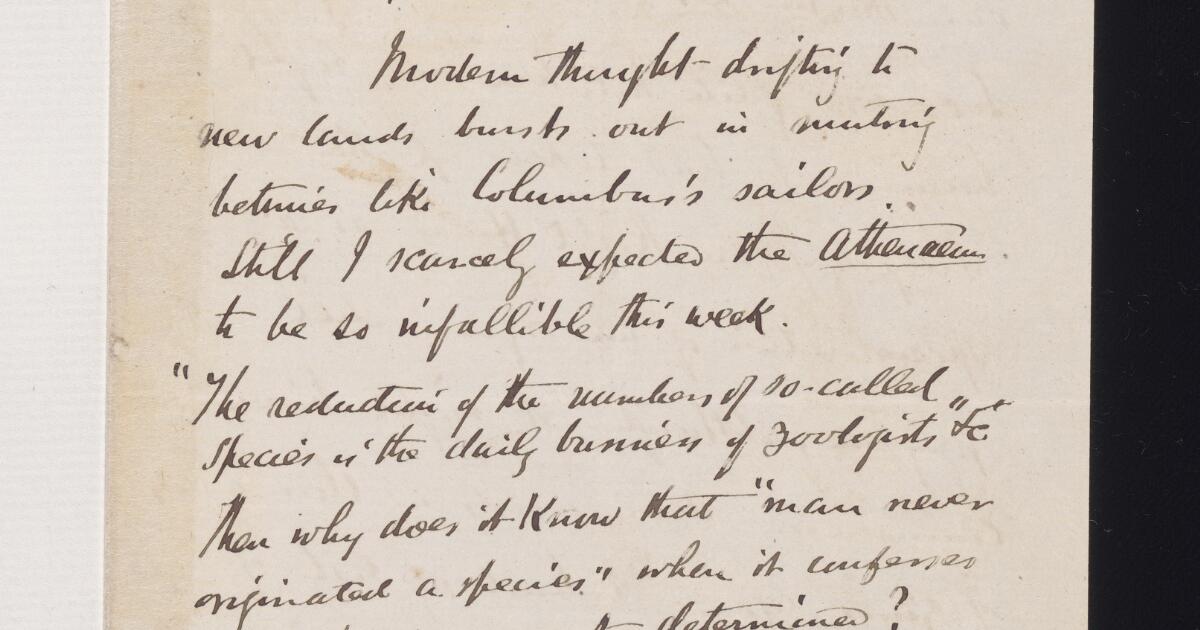 Modern thought drifting to
new lands bursts out in mutiny
betimes like Columbus's sailors.
Still I scarcely expected the Athenaeum
to be so infallible this week.
"The reduction of the numbers of so-called
species is the daily business of zoologists" &c
Then why does it know that "man never
originated a species" when it confesses
to determined?